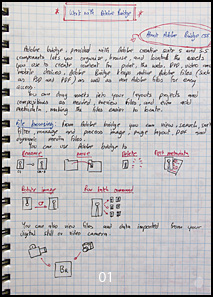 Unit with Adobe Bridge
About Adobe Bridge CS5
Adobe Bridge, provided with Adobe creative suite 5 and 5.5
components lets you organize, browse, and locate the assets
you use to create content for print, the web, PDF, video and
mobile devices. Adobe Bridge keep native Adobe files (such
as PSD and PDF) as well as non Adobe files for easy
access.
You can drag assets into your layouts projects and
compositions as needed, preview files, and even add
metadata, making the files easier to locate.
File browsing: from Adobe Bridge you can view, search, sort
filter, manage and process image, page layout, PDF and
dynamic media files
You can use Adobe Bridge to:
Rename
move
Delete
Edit metadata
Rotate image
Run batch command
You can also view files and data imported from your
digital still or video camera.
Br
01